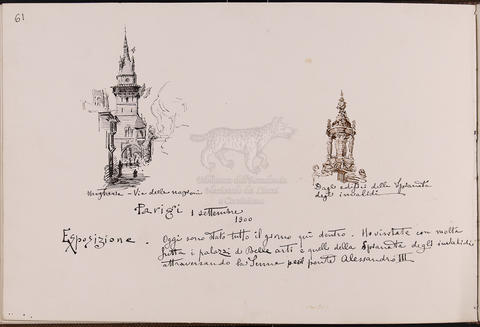 61
Ungheria - Via delle nazioni
Dagli edifizi della Spianata
degli invalidi
Parigi 1 settembre
1900
Esposizione. Oggi sono stato tutto il giorno quì dentro. Ho visitate con molta
fretta i palazzi di Belle arti e quelli della Spianata degli invalidi
attraversando la Senna pel ponte Alessandro III
Biblioteca dell'Accademia
Nazionale dei Lincei
e Corsiniana